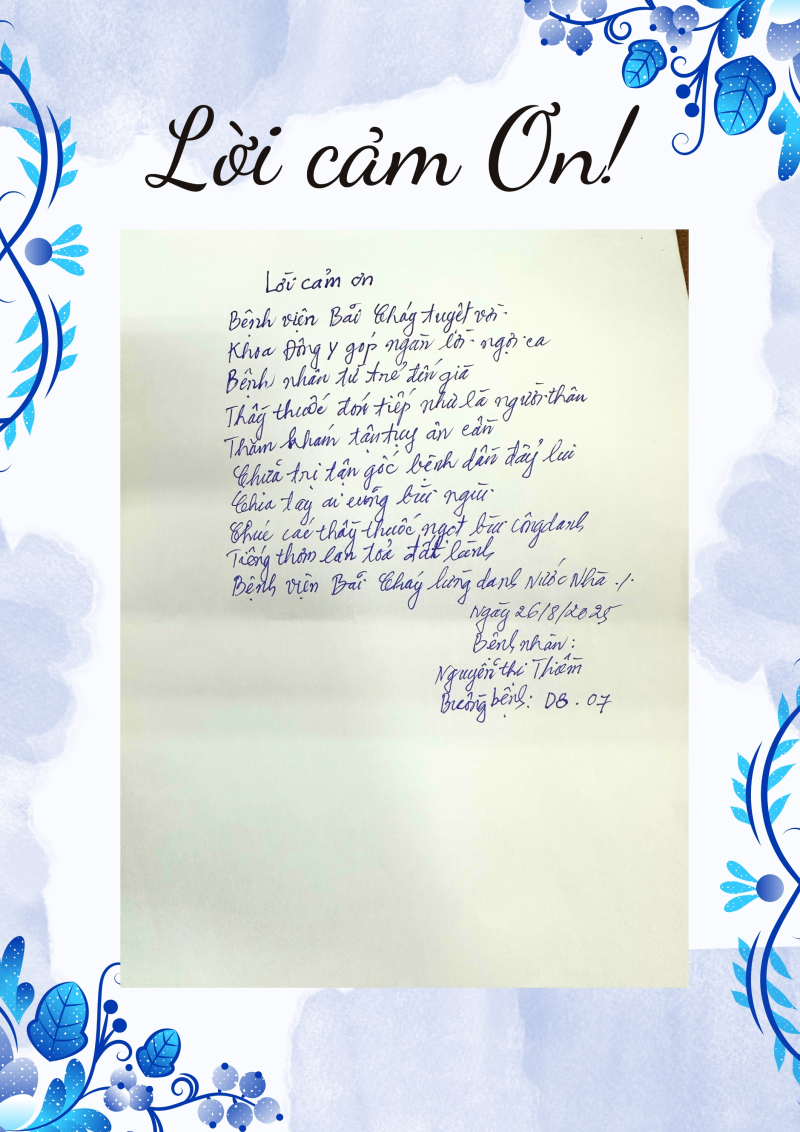 Lời cảm Ơn!
Lời cảm ơn
Bệnh viện Bãi Cháy tuyệt vời
Khoa Đông y góp ngàn lời ngợi ca
Bệnh nhân từ trẻ đến già
Thầy thuốc đón tiếp như là người thân
Thăm khám tận tụy ân cần
Chữa trị tận gốc bệnh dần đẩy lui
Chia tay ai cũng bùi ngùi
Chúc các thầy thuốc ngọt bùi công danh
Tiếng thơm lan toả đất lành
Bệnh viện Bãi Cháy lừng danh Nước Nhà ./.
Ngày 26/8/2025
Bệnh nhân:
Nguyễn thị Thiềm
Buồng bệnh: D8.07